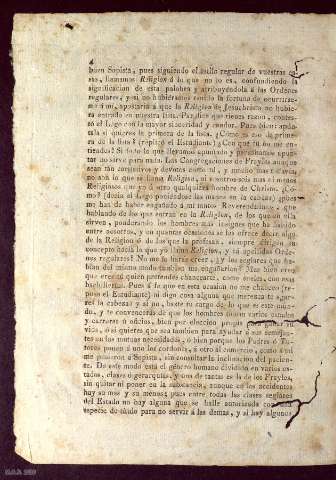 4
bien Sopista, pues siguiendo el estilo regular de vuestras ca-
sas, llamamos Religion á lo que no lo es, confundiendo la
significacion de esta palabra y atribuyéndola á las Ordenes
regulares, y si no hubieramos tenido la fortuna de
á mi, apostaria á que la Religion de Jesuchristo no hubie-
ra entrado en nuestra lista. Par diez que tienes razon, contes-
tó el Lego con la mayor sinceridad y candor. Pues bien: apúnta-
la si quieres la primera de la lista. ¿Cómo es eso de primera
de la lista? (replicó el Estudiante) ¿Con que tú no me en-
tiendes? Si todo lo que llevamos
tar no sirve para nada. Las Congregaciones de Frayles aunque
sean tan constitutivas y devotas como tal, y mucho mas
no son lo que se llama Religion, ni vosotros sois mas ni menos
Religiosos que yo ó otro qualquiera hombre de Christo. ¿Có-
mo? (decia el Lego poniéndose las manos en la cabeza) ¿pues
me han de haber engañado á mí tantos Reverendísimos, que
hablando de los que entran en la Religion, de los que en ella
sirven, ponderando los hombres mas insignes que ha habido
entre nosotros, y en quantas ocasiones se les ofrece decir algo
de la Religion ó de los que la profesan, siempre dirigen su
concepto hácia lo que yo llamo Religion, y tú apellidas Orde-
nes regulares? No me lo harás creer. ¿Y los seglares que ha-
blan del mismo modo tambien me engañarian? Mas bien creo
que eres tú quien pretendes chancearte, como sueles, con mis
bachillerías. Pues á fe que en esta ocasion no me chanceo (re-
puso el Estudiante) ni digo cosa alguna que merezca te
res la cabeza: y si no, hazte tu cargo de lo que es este mun-
do, y te convencerás de que los hombres toman varios estados
y carreras ó oficios, bien por eleccion propia para pasar su
vida, ó si quieres que sea tambien para ayudar á sus semejan-
tes en las mutuas necesidades, ó bien porque los Padres ó Tu-
tores ponen á uno los cordones, á otro al comercio, como á mí
me pusieron á Sopista, sin consultar la inclinacion del pacien-
te. De este modo está el género humano dividido en varios es-
tados, clases ó gerarquías, y una de tantas es la de los Frayles,
sin quitar ni poner en la substancia, aunque en los accidentes
hay su mas y su menos; pues entre todas las clases seglares
del Estado no hay alguna que se halle autorizada con
especie de título para no servir á las demas, y si hay algunos